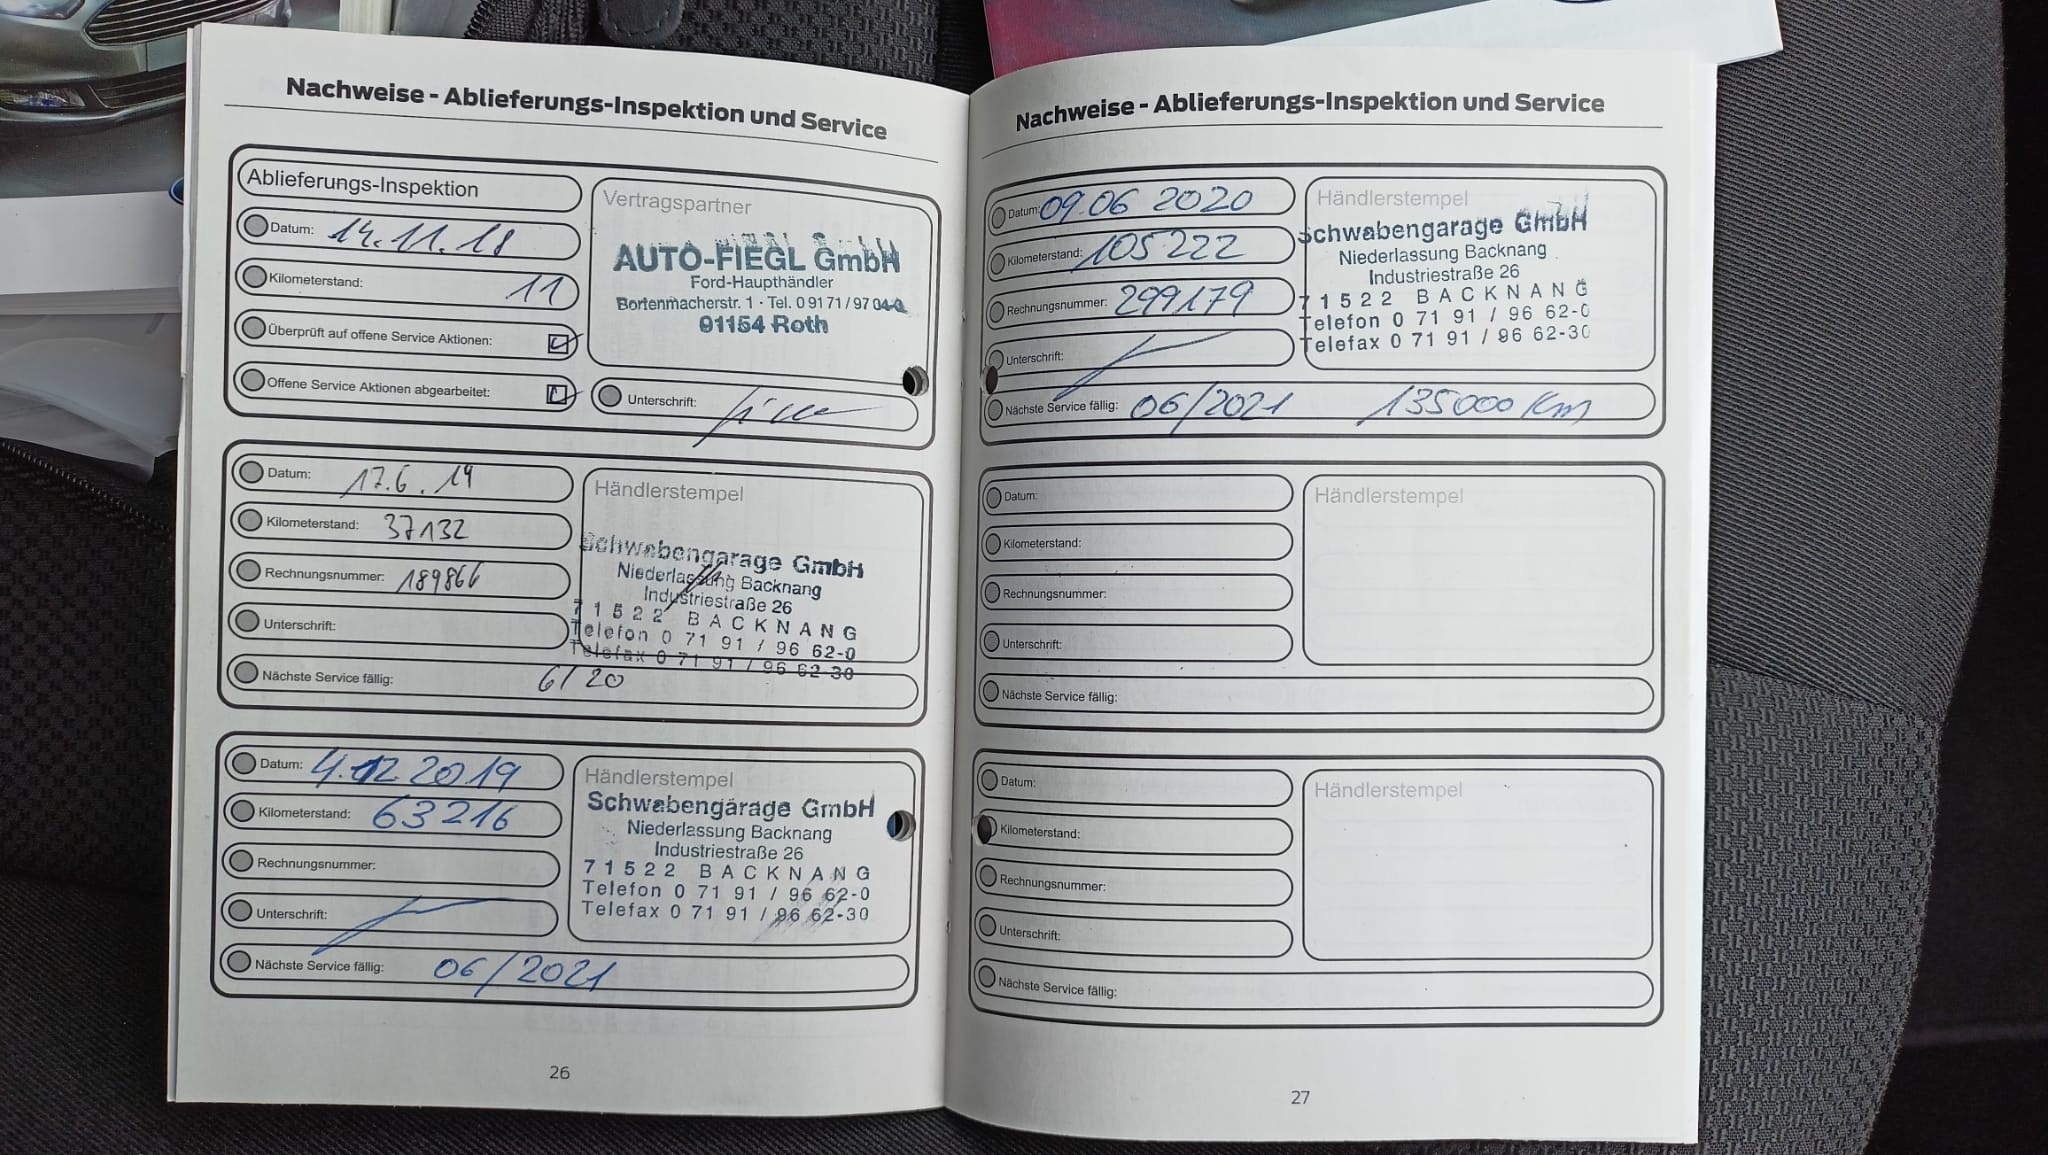 Nachweise - Ablieferungs-Inspektion und Service
Ablieferungs-Inspektion
Datum: 14.11.18
Kilometerstand: 11
Überprüft auf offene Service Aktionen:
Offene Service Aktionen abgearbeitet:
Vertragspartner
AUTO-FIEGL GmbH
Ford-Haupthändler
Bortenmacherstr. 1 · Tel. 09171/9704-0
91154 Roth
Unterschrift:
Datum: 17.6.19
Kilometerstand: 37132
Rechnungsnummer: 189866
Unterschrift:
Händlerstempel
Schwabengarage GmbH
Niederlassung Backnang
Industriestraße 26
71522 BACKNANG
Telefon 0 71 91 / 96 62-0
Telefax 0 71 91 / 96 62-30
Nächste Service fällig: 6/20
Datum: 4.12 2019
Kilometerstand: 63216
Rechnungsnummer:
Unterschrift:
Händlerstempel
Schwabengarage GmbH
Niederlassung Backnang
Industriestraße 26
71522 BACKNANG
Telefon 0 71 91 / 96 62-0
Telefax 0 71 91 / 96 62-30
Nächste Service fällig: 06/2021
26
Nachweise - Ablieferungs-Inspektion und Service
Datum: 09.06 2020
Kilometerstand: 105222
Rechnungsnummer: 299179
Unterschrift:
Händlerstempel
Schwabengarage GmbH
Niederlassung Backnang
Industriestraße 26
71522 BACKNANG
Telefon 0 71 91 / 96 62-0
Telefax 0 71 91 / 96 62-30
Nächste Service fällig: 06/2021 135000 Km
Datum:
Kilometerstand:
Rechnungsnummer:
Unterschrift:
Händlerstempel
Nächste Service fällig:
Datum:
Kilometerstand:
Rechnungsnummer:
Unterschrift:
Händlerstempel
Nächste Service fällig:
27